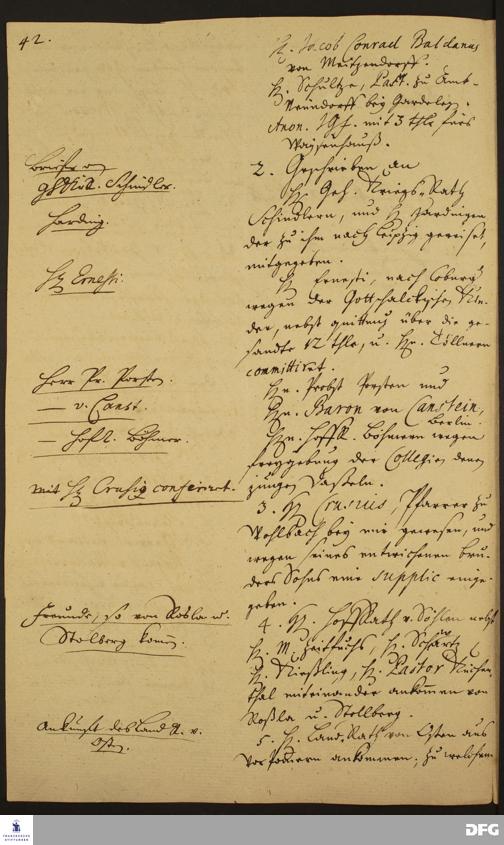 42.
H. Jacob Conrad Baldanus
von Meitzendorff.
H. Schultze, Past. zu Amt-
Neündorff bey Gardelegen.
Anon. mit 3 thlr fürs
Waysenhauß.
Brieffe an
Schindler.
Hardnig.
2. Geschrieben an
H. Geh. Kriegs-Rath
Schindlern, und H. Hardnigen
der zu ihm nach Leipzig gereiset,
mitgegeben.
H. Ernesti.
H. Ernesti, nach Coburg
wegen der Gottschalckischen Kin-
der, nebst quittung über die ge-
sandte 12 thlr, u. H. Töllnern
committiret.
Herr Pr. Porsten.
— v. Canst.
— Hoff R. Böhmer.
Hn. Probst Porsten und
Hn. Baron von Canstein,
Berlin.
Hn. Hoff R. Böhmern wegen
freygebung der Collegien denen
jungen
mit H. Crusio conferiret.
3. H. Crusius, Pfarrer zu
Mohlsbach bey mir gewesen, und
wegen seines entwichenen bru-
ders Sohns eine supplic einge-
geben.
Freunde, so von Rosla u.
Stolberg komm.
4. H. Hoff Rath v. Söhlen nebst
H. M. Zeitfuchs, H. Schartz
H. Nießling, H. Pastor Kirchen-
thal miteinander ankommen von
Roßla u. Stollberg.
Ankunfft des Land R. v.
Osten.
5. H. Land-Rath von Osten aus
Vor Pomern ankommen; zu welchem
FRANCKESCHE STIFTUNGEN
DFG